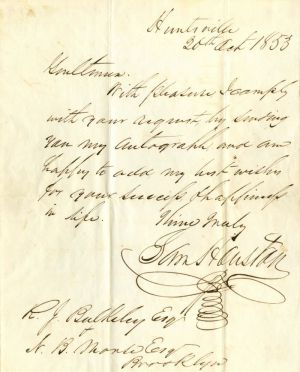 Huntsville
20th Oct 1853
Gentlemen.
With pleasure I comply
with your request by sending
you my autograph, and am
happy to add my best wishes
for your success & happiness
in life.
Thine truly
Sam Houston
R. J. Bulkeley Esq
&
N. B. Monte Esq
Brooklyn